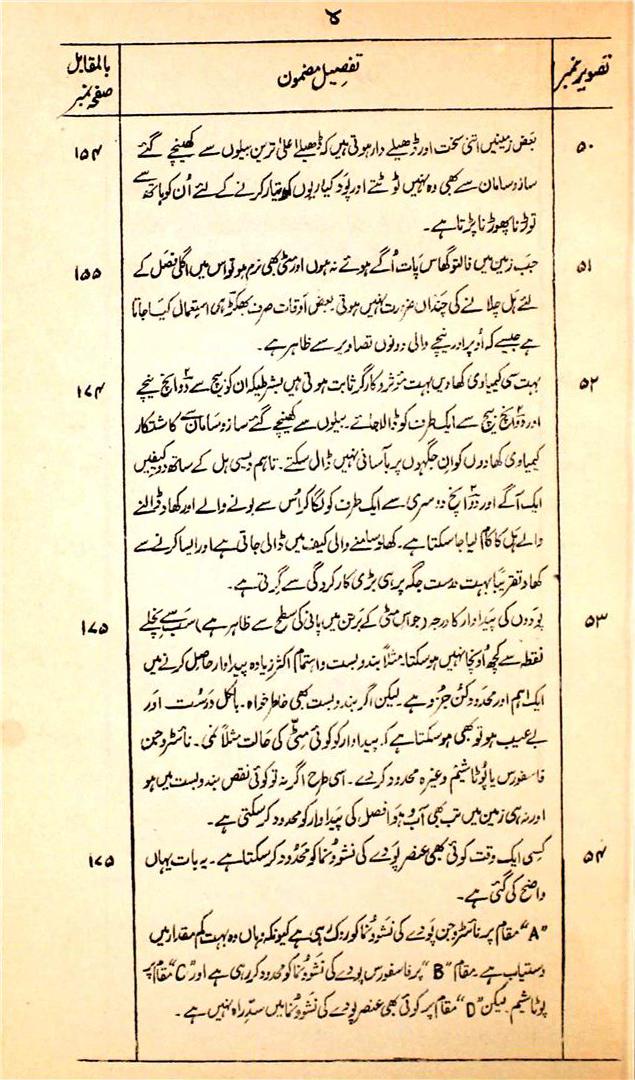 لا
تصویر نمبر تفصیل مضمون بالمقابل صفحہ نمبر
۵۰ بعض زمینیں اتنی سخت اور ڈھیلے دار ہوتی ہیں کہ ڈھیلے اعلیٰ ترین بیلوں سے کھینچے گئے ۱۵۴
سازوسامان سے بھی وہ نہیں ٹوٹتے اور پود کیاریوں کو تیار کرنے کے لئے اُن کو ہاتھ سے
توڑنا پھوڑنا پڑتا ہے۔
۵۱ جب زمین میں فالتو گھاس پات اُگے ہوئے نہ ہوں اور مٹی بھی نرم ہو تو اس میں اگلی فصل کے ۱۵۵
لئے ہل چلانے کی چنداں ضرورت نہیں ہوتی۔ بعض اوقات صرف بھکڑ ہی استعمال کیا جاتا
ہے جیسے کہ اُوپر اور نیچے والی دونوں تصاویر سے ظاہر ہے۔
۵۲ بہت سی کیمیاوی کھادیں بہت مؤثر و کارگر ثابت ہوتی ہیں بشرطیکہ ان کو بیج سے دو۲ انچ نیچے ۱۷۴
اور دو۲ انچ بیج سے ایک طرف کو ڈالا جائے۔ بیلوں سے کھینچے گئے سازوسامان سے کاشتکار
کیمیاوی کھادوں کو ان جگہوں پر بآسانی نہیں ڈال سکتے۔ تاہم دیسی ہل کے ساتھ دو کیفیں
ایک آگے اور دو۲ انچ دوسری سے ایک طرف کو لگا کر اُس سے بونے والے اور کھاد ڈالنے
والے ہل کا کام لیا جا سکتا ہے۔ کھاد سامنے والی کیف میں ڈالی جاتی ہے اور ایسا کرنے سے
کھاد تقریباً بہت درست جگہ پر ہی بڑی کارکردگی سے گرتی ہے۔
۵۳ پودوں کی پیداوار کا درجہ (جو اس مٹی کے برتن میں پانی کی سطح سے ظاہر ہے) سب سے نچلے ۱۷۵
نقطہ سے کچھ اُونچا نہیں ہو سکتا۔ مثلاً بندوبست و اہتمام اکثر زیادہ پیداوار حاصل کرنے میں
ایک اہم اور محدود کُن جزو ہے۔ لیکن اگر بندوبست بھی خاطر خواہ۔ بالکل درست اور
بے عیب ہو تو بھی ہو سکتا ہے کہ پیداوار کو کوئی مٹی کی حالت مثلاً نمی۔ نائٹروجن
فاسفورس یا پوٹاشیم وغیرہ محدود کر دے۔ اسی طرح اگر نہ تو کوئی نقص بندوبست میں ہو
اور نہ ہی زمین میں تب بھی آب و ہوا فصل کی پیداوار کو محدود کر سکتی ہے۔
۵۴ کسی ایک وقت کوئی بھی عنصر پودے کی نشوونما کو محدود کر سکتا ہے۔ یہ بات یہاں ۱۷۵
واضح کی گئی ہے۔
"A" مقام پر نائٹروجن پودے کی نشوونما کو روک رہی ہے کیونکہ وہاں وہ بہت کم مقدار میں
دستیاب ہے۔ مقام "B" پر فاسفورس پودے کی نشوونما کو محدود کر رہی ہے اور "C" مقام پر
پوٹاشیم۔ لیکن "D" مقام پر کوئی بھی عنصر پودے کی نشوونما میں سدِّ راہ نہیں ہے۔